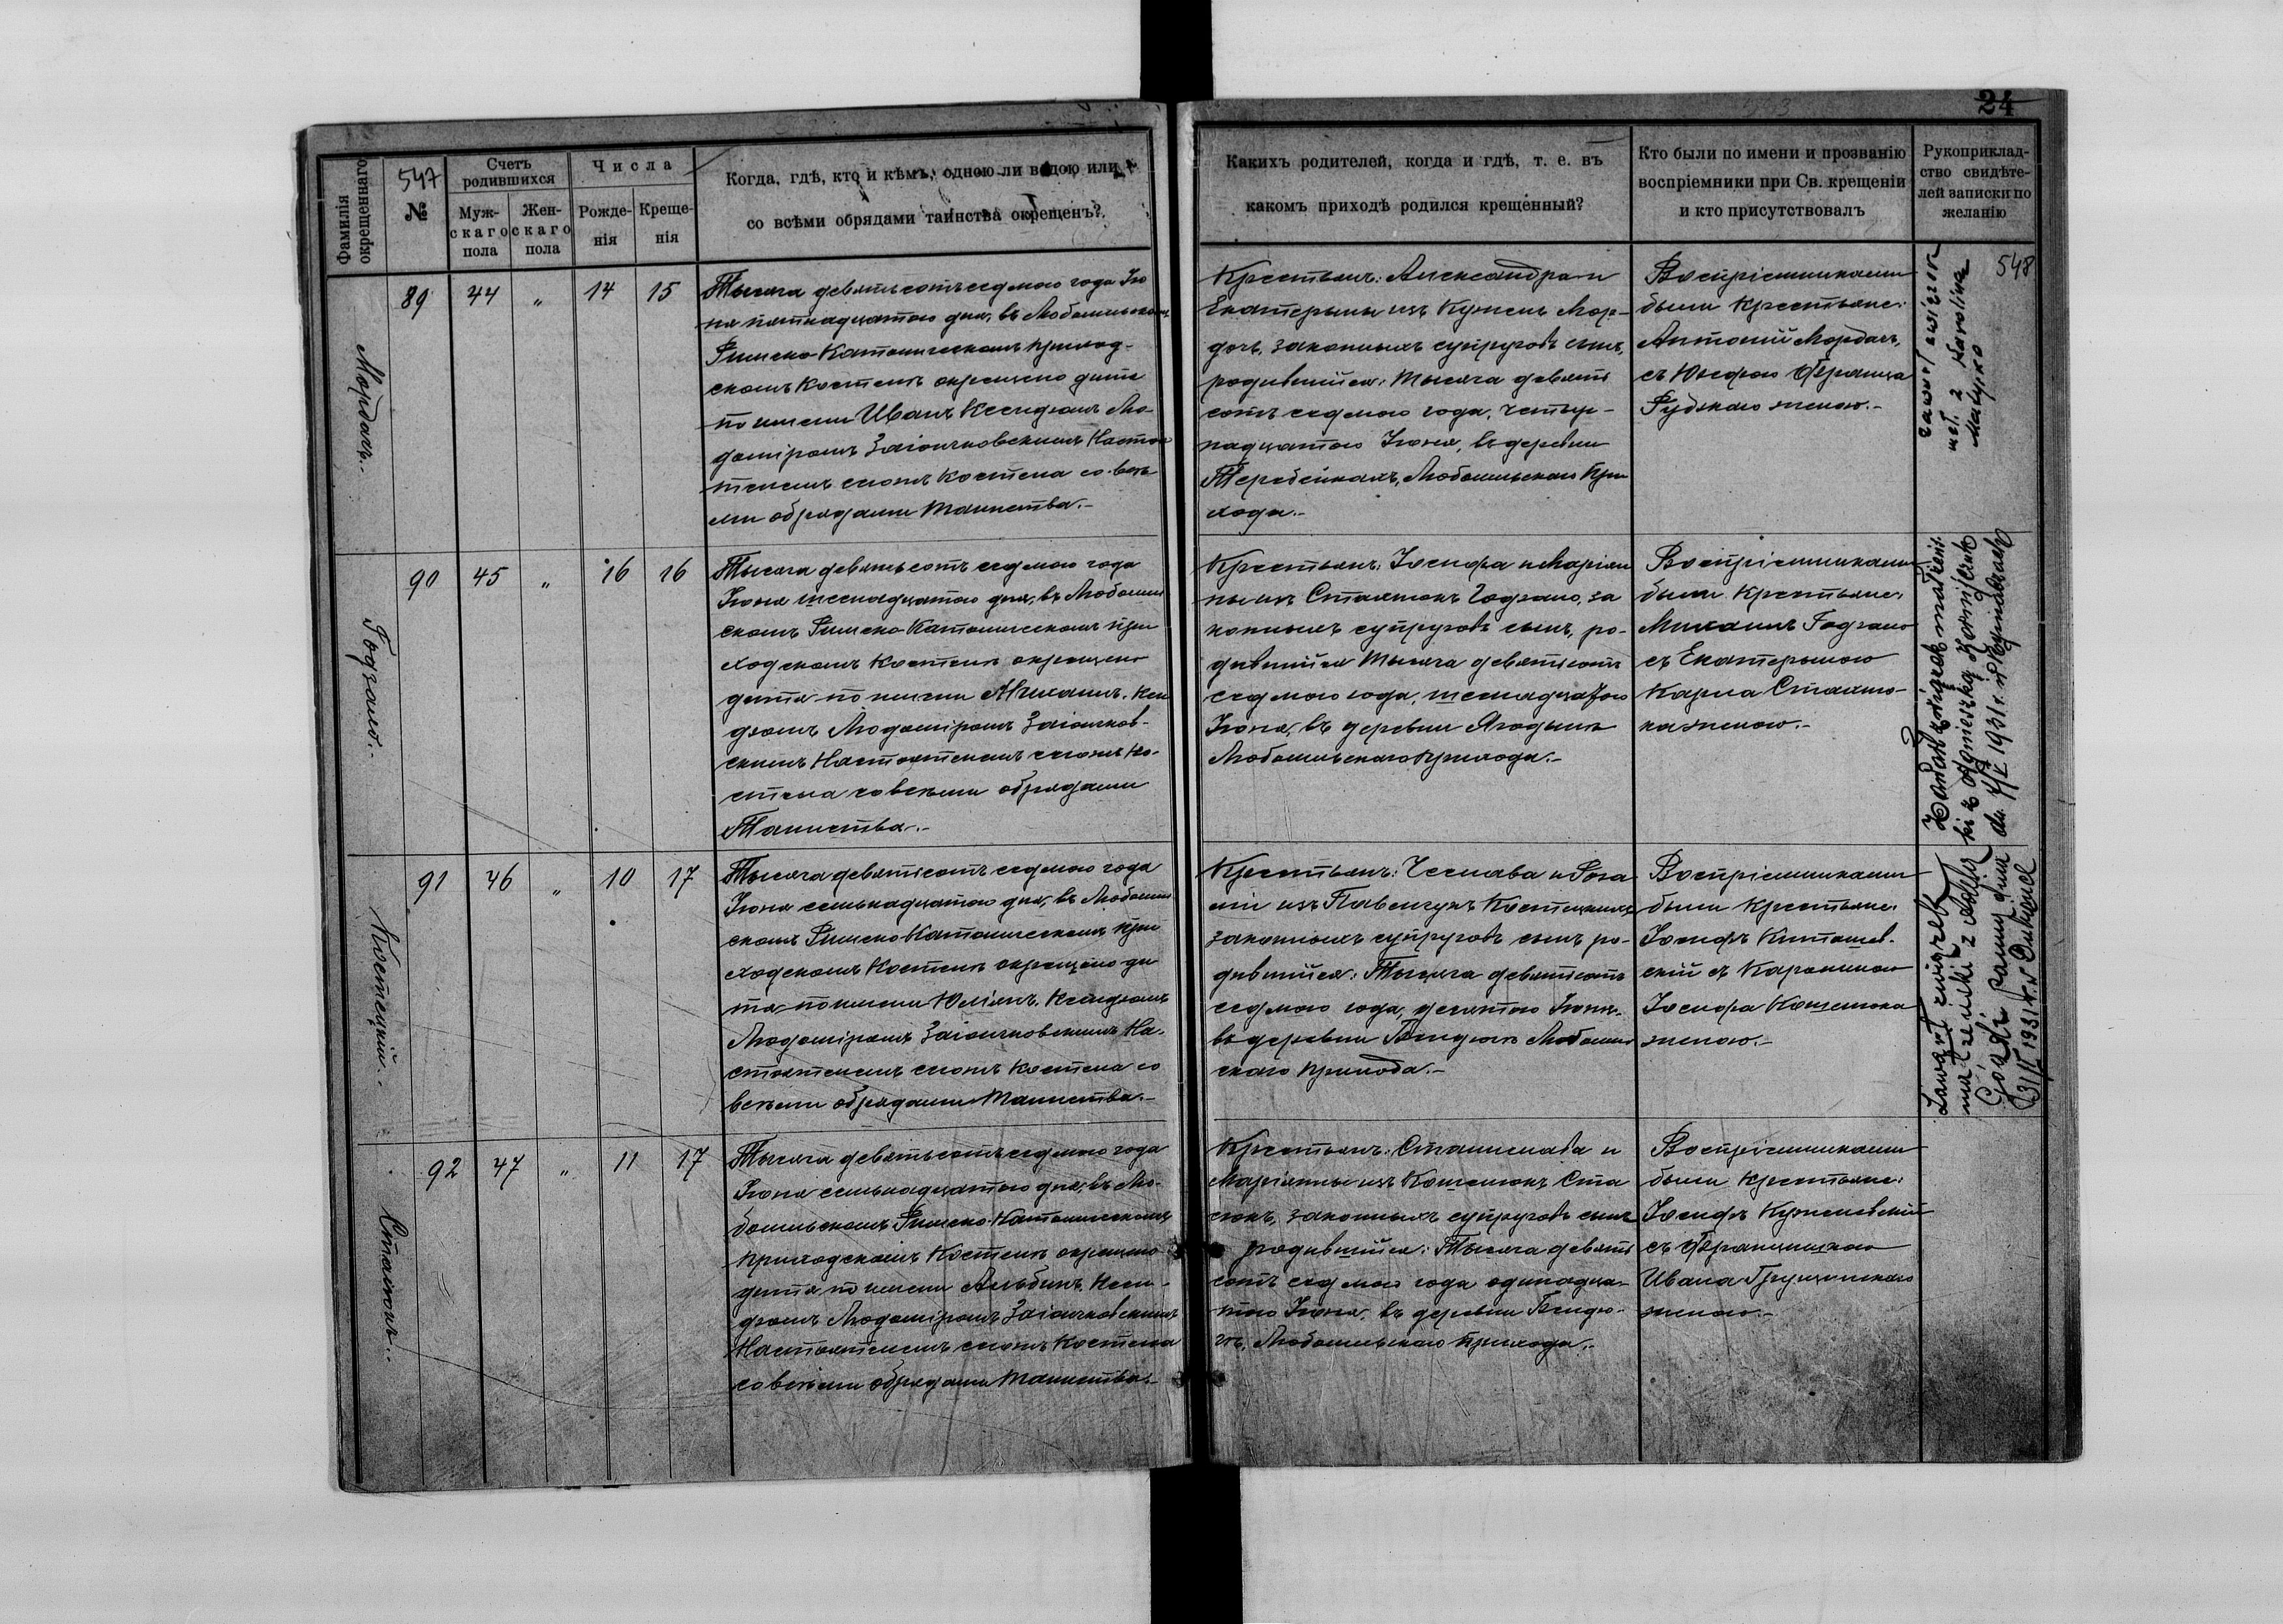 24
547
548
Фамилія окрещеннаго
№
Счетъ родившихся
Муж-скаго пола
Жен-скаго пола
Числа
Рожде-нія
Креще-нія
Когда, гдѣ, кто и кѣмъ, одною ли водою или
со всѣми обрядами таинства окрещенъ?
Какихъ родителей, когда и гдѣ, т. е. въ
какомъ приходѣ родился крещенный?
Кто были по имени и прозванію
воспріемники при Св. крещеніи
и кто присутствовалъ
Рукоприклад-
ство свидѣте-
лей записки по
желанію
Мордачъ.
89 44 „ 14 15
Тысяча девятьсотъ седмого года Iю
ня пятнадцатого дня, въ Любомльскомъ
Римско-Католическомъ приход-
скомъ Костелѣ окрещено дитя
по имени Иванъ Ксендзомъ Лю-
доміромъ Заіончковскимъ Настоя
телемъ сего Костела со всѣ-
ми обрядами Таинства.-
Крестьянъ: Александра и
Екатерины изъ Кужель Мор-
дачъ, законныхъ супруговъ сынъ,
родившийся: тысяча девять
сотъ седмого года, четыр-
надцатого Iюня, въ деревни
Теребейкахъ, Любомльскаго При
хода.-
Воспріемниками
были Крестьяне:
Антоній Мордачъ,
съ Юзефою Франца
Рудскаго женою.-
zawarł związek
z Karolina
Годзало.
90 45 „ 16 16
Тысяча девятьсотъ седмого года
Iюня шеснадцатого дня, въ Любомль
скомъ Римско-Католическомъ при
ходскомъ Костелѣ окрещено
дитя по имени Михаилъ. Ксен
дзомъ Людоміромъ Заіончков-
скимъ Настоятелемъ сего Ко-
стела со всѣми обрядами
Таинства.-
Крестьянъ: Iосифа и Маріан
ны изъ Стахнюкъ Годзало, за
конныхъ супруговъ сынъ, ро-
дившийся тысяча девятьсотъ
седмого года, шеснадцатого
Iюня, въ деревни Ягодинѣ
Любомльскаго прихода.-
Воспріемниками
были Крестьяне:
Михаилъ Годзало
съ Екатериною
Карла Стахню-
ка женою.-
Zawarł związek małżeń-
ski z Agnieszką
dn. 1931 r.
Костецкий.
91 46 „ 10 17
Тысяча девятьсотъ седмого года
Iюня семьнадцатого дня, въ Любомль
скомъ Римско Католическомъ при
ходскомъ Костелѣ окрещено ди
тя по имени Юліянъ. Ксендзомъ
Людоміромъ Заіончковскимъ На-
стоятелемъ сего Костела со
всѣми обрядами Таинства.-
Крестьянъ: Чеслава и Роза
ліи изъ Костецкихъ
законныхъ супруговъ сынъ ро-
дившийся: Тысяча девятьсотъ
седмого года, десятого Iюня.
въ деревни Бендюгѣ Любомль
скаго прихода.-
Воспріемниками
были Крестьяне:
Iосифъ
скій съ Каролиною
Iосифа Кошелюка
женою.-
Zawarł związek
małżeński z
1931 r. w
Стасюкъ.
92 47 „ 11 17
Тысяча девятьсотъ седмого года
Iюня семьнадцатого дня, въ Лю-
бомльскомъ Римско-Католическомъ
приходскомъ Костелѣ окрещено
дитя, по имени Альбинъ. Ксен-
дзомъ Людоміромъ Заіончковскимъ
Настоятелемъ сего Костела
со всѣми обрядами Таинства.-
Крестьянъ: Станислава и
Маріянны изъ Кошелюкъ Ста
сюкъ, законныхъ супруговъ сынъ
родившийся: Тысяча девять
сотъ седмого года одинадца-
того Iюня, въ деревни Бендю-
гѣ, Любомльскаго прихода.-
Воспріемниками
были Крестьяне:
Iосифъ Кужелевскій
съ Францишкою
Ивана
женою.-